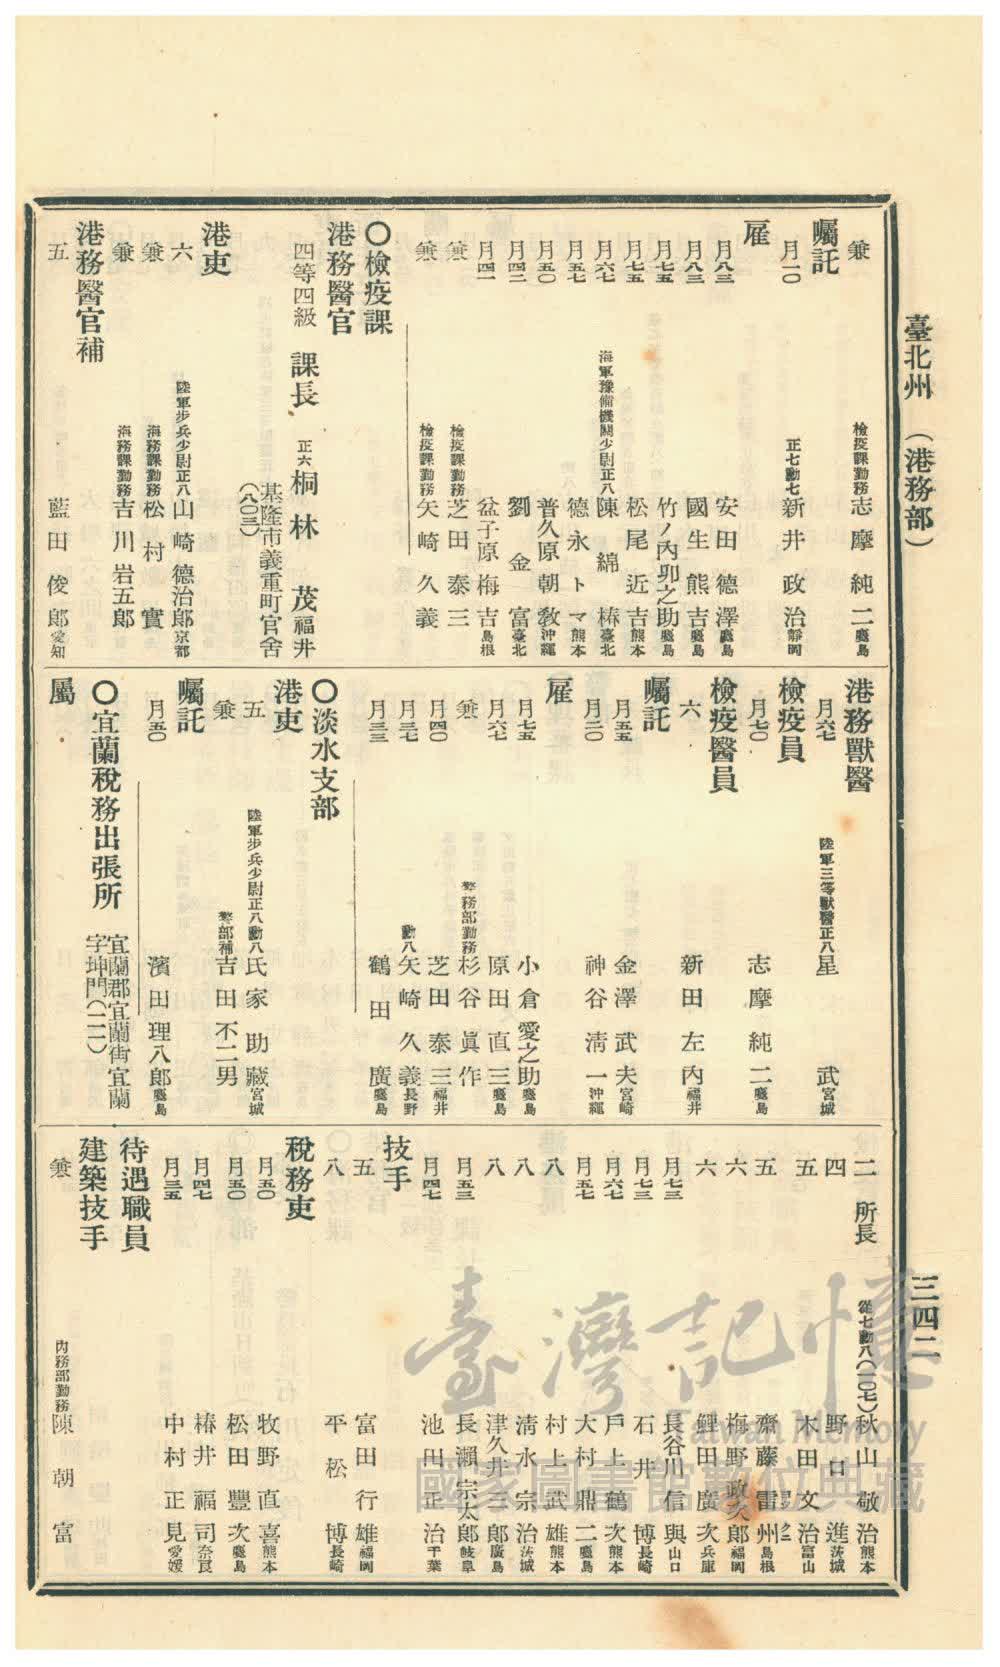 臺北州 (港務部)
三四二
兼 檢疫課勤務 志摩純二 鹿兒島
囑託
月一〇 正七勳七 新井政治 靜岡
雇
月八三 安田德澤 鹿兒島
月八三 國生熊吉 鹿兒島
月七五 竹ノ內卯之助 鹿兒島
月七五 松尾近吉 熊本
月六七 海軍豫備機關少尉正八 陳綿椿 臺北
月五七 德永トマ 熊本
月五〇 普久原朝敎 沖繩
月四二 劉金富 臺北
月四一 盆子原梅吉 島根
兼 檢疫課勤務 芝田泰三
兼 檢疫課勤務 矢崎久義
〇檢疫課
港務醫官
四等四級 課長 正六 桐林茂 福井
基隆市義重町官舍
(八〇三)
港吏
六 陸軍步兵少尉正八 山崎德治郎 京都
兼 海務課勤務 松村實
兼 海務課勤務 吉川岩五郎
港務醫官補
五 藍田俊郎 愛知
港務獸醫
月六七 陸軍三等獸醫正八 星武 宮城
檢疫員
月七〇 志摩純二 鹿兒島
檢疫醫員
六 新田左內 福井
囑託
月五五 金澤武夫 宮崎
月二〇 神谷淸一 沖繩
雇
月七五 小倉愛之助 鹿兒島
月六七 原田直三 鹿兒島
兼 警務部勤務 杉谷眞作
月四〇 芝田泰三 福井
月三七 勳八 矢崎久義 長野
月三三 鶴田廣 鹿兒島
〇淡水支部
港吏
五 陸軍步兵少尉正八勳八 氏家助藏 宮城
兼 警部補 吉田不二男
囑託
月五〇 濱田理八郎 鹿兒島
〇宜蘭稅務出張所 宜蘭郡宜蘭街宜蘭
字坤門(二二)
屬
二 所長 從七勳八(一〇七) 秋山敬治 熊本
四 野口進 茨城
五 木田文治 富山
五 齋藤雷州 島根
六 梅野政次郎 福岡
六 鯉田廣次 兵庫
月七三 長谷川信與 山口
月七三 石井博 長崎
月六七 戶上鶴次 熊本
月五七 大村鼎二 鹿兒島
八 村上武雄 熊本
八 淸水宗治 茨城
八 津久井三郎 廣島
月五三 長瀨宗太郎 岐阜
月四七 池田正治 千葉
技手
五 富田行雄 福岡
八 平松博 長崎
稅務吏
月五〇 牧野直喜 熊本
月五〇 松田豐次 鹿兒島
月四七 椿井福司 奈良
月三五 中村正見 愛媛
待遇職員
建築技手
兼 內務部勤務 陳朝富
臺灣記憶
Taiwan Memory
國家圖書館數位典藏